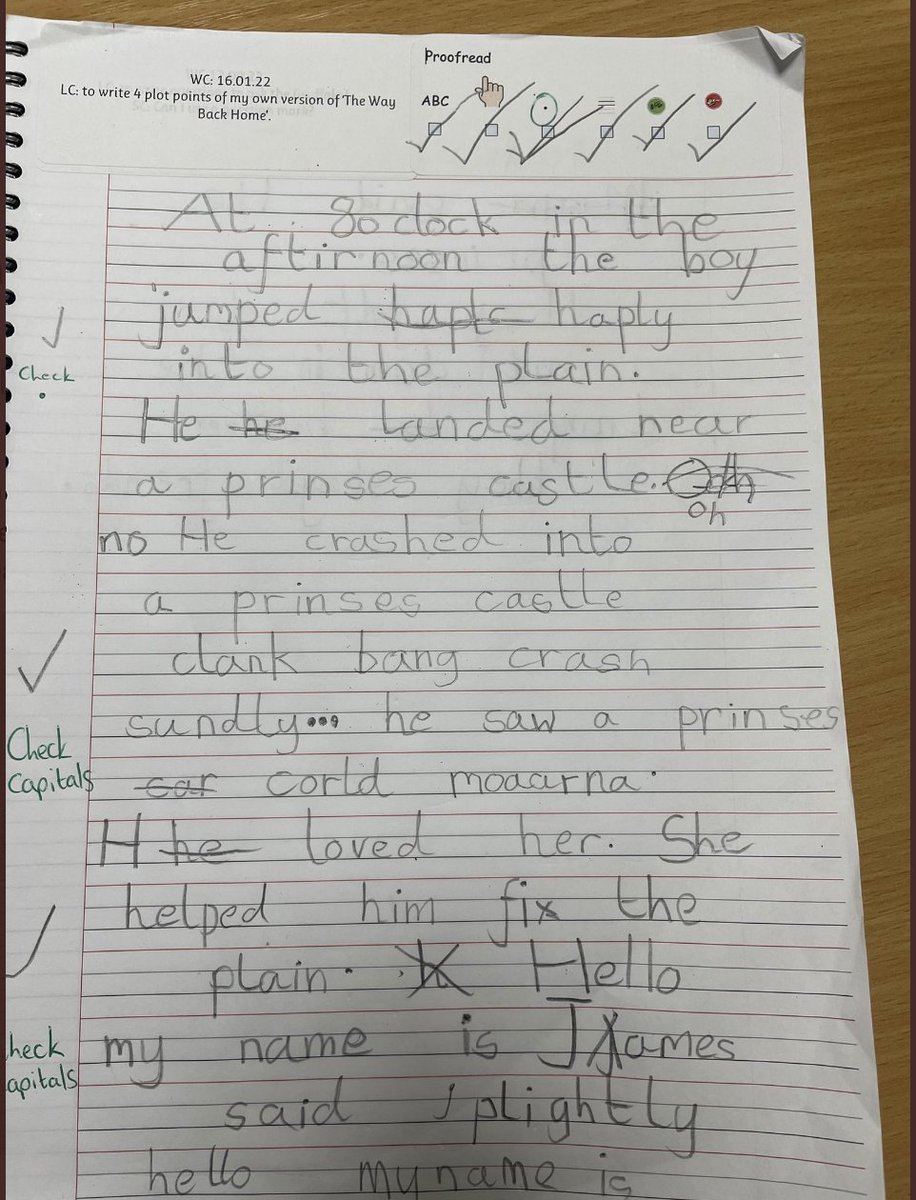 WC: 16.01.22
LC: to write 4 plot points of my own version of 'The Way
Back Home'.
Proofread
ABC
At 8oclock in the
aftirnoon the boy
jumped hapte haply
into the plain.
Check
He he landed near
a prinses castle.
oh
no He crashed into
a prinses castle
clank bang crash
sundly... he saw a prinses
Check
Capitals
car corld moaarna.
H he loved her. She
helped him fix the
plain. Hello
heck
apitals
my name is James
said plightly
hello my name is